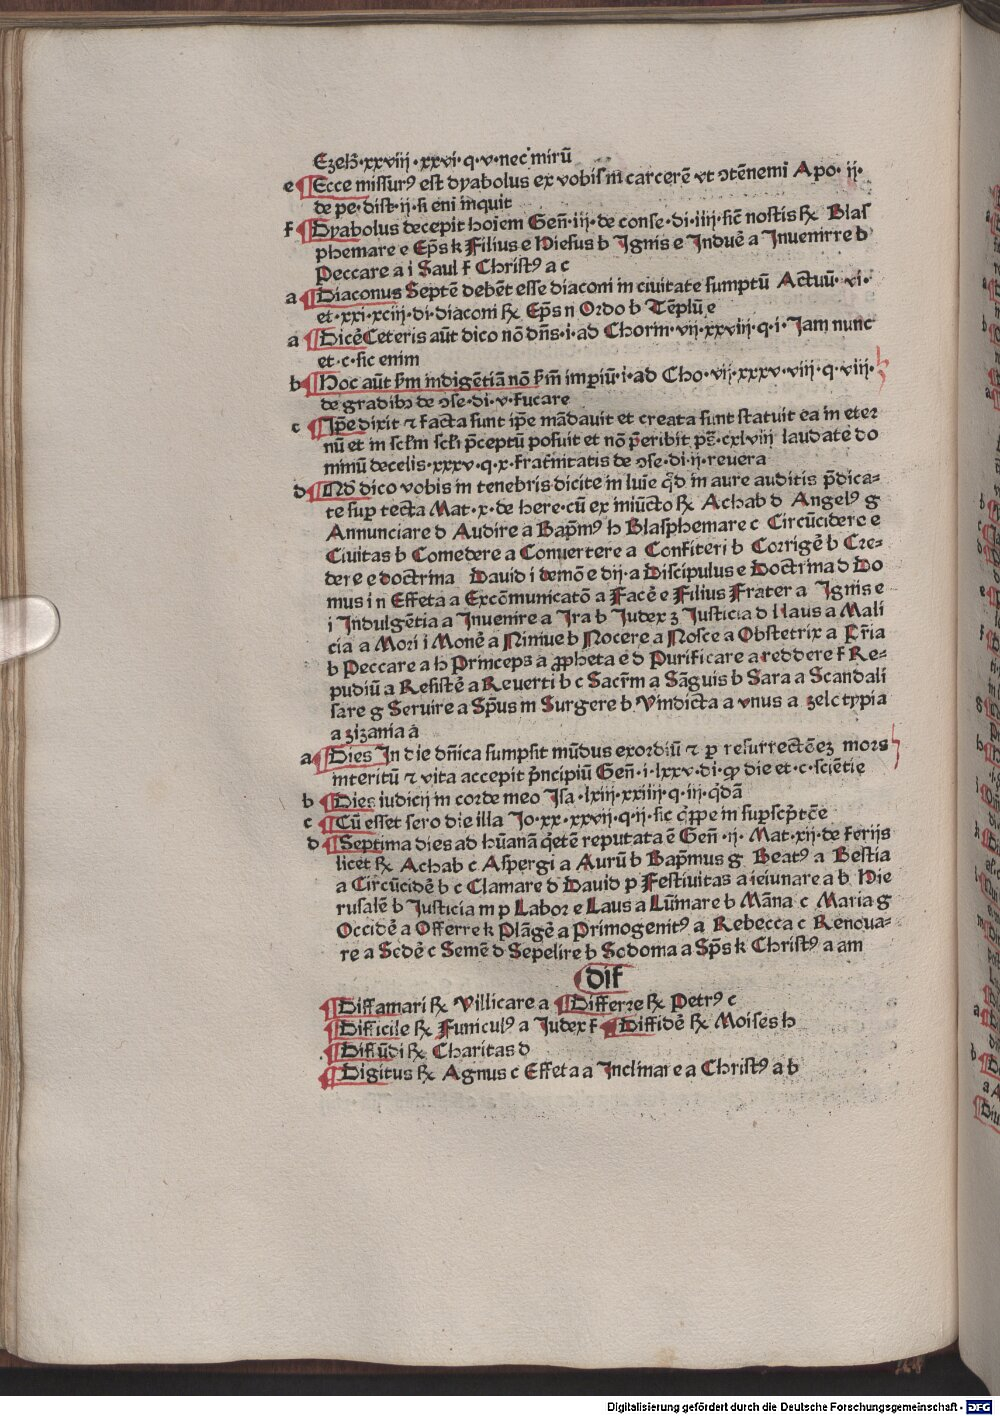 Ezeħ·xxviij·xxvi·q·v·nec mirū
e ¶ Ecce missurꝰ est dyabolus ex vobis in carcerē vt ↄtēnemi Apo·ij·
de pe·dist·ij·si eni inquit
f ¶ Dyabolus decepit hoiem Geñ·iij·de conse·di·iiij·sic̄ nostis ꝶ Blas
phemare e Ep̄s k Filius e Hiesus b Ignis e Induē a Inuenirre b
Peccare a i Saul f Christꝰ a c
a ¶ Diaconus Septē debēt esse diaconi in ciuitate sumptū Actuū·vi·
et·xxi·xciij·di·diaconi ꝶ Ep̄s n Ordo b Tēplū e
a ¶ Dicē Ceteris aūt dico nō dn̄s·i·ad Chorin·vij·xxviij·q·i·Iam nunc
et·c·sic enim
b ¶ Hoc aūt ẜm indigētiā nō ẜm imꝑiū·i·ad Cho·vij·xxxv·viij·q·viij·
de gradibꝫ de ↄse·di·v·fucare
c ¶ Ip̄e dixit ⁊ facta sunt ip̄e mādauit et creata sunt statuit ea in eter
nū et in scƚm scƚi p̄ceptū posuit et nō p̄eribit ps̄·cxlviij laudate do
minū de celis·xxxv·q·x·frat̄nitatis de ↄse·di·ij·reuera
d ¶ Nō dico vobis in tenebris dicite in luīe q̄d in aure auditis p̄dica-
te suꝑ tecta Mat·x·de here·cū ex iniūcto ꝶ Achab d Angelꝰ g
Annunciare d Audire a Bap̄mꝰ h Blasphemare c Circūcidere e
Ciuitas b Comedere a Conuertere a Confiteri b Corrigē b Cre-
dere e doctrina David i demō e dij·a Discipulus e Doctrina d Do
mus i n Effeta a Excōmunicatō a Facē e Filius Frater a Ignis e
i Indulgētia a Inuenire a Ira b Iudex ʒ Iusticia d Laus a Mali
cia a Mori i Monē a Niniue b Nocere a Nosce a Obstetrix a Pr̄ia
b Peccare a h Princeps a ꝓpheta e d Purificare a reddere f Re-
pudiū a Resistē a Reuerti b c Sacr̄m a Sāguis b Sara a Scandali
sare g Seruire a Sp̄us m Surgere b Vindicta a vnus a zelotypia
a zizania a
a ¶ Dies In die dn̄ica sumpsit mūdus exordiū ⁊ ꝑ resurrectōeʒ mors
interitū ⁊ vita accepit p̄ncipiū Geñ·i·lxxv·di·ꝙ die et·c·sciētie
b ¶ Dies iudicij in corde meo Isa·lxiij·xxiiij·q·iij·q̄dā
c ¶ Cū esset sero die illa Io·xx·xxvij·q·ij·sic q̄ppe in suꝑsc̄ptōe
d ¶ Septima dies ad hūanā q̄etē reputata ē Geñ·ij·Mat·xij·de ferijs
licet ꝶ Achab c Aspergi a Aurū b Bap̄mus g Beatꝰ a Bestia
a Circūcidē b c Clamare d David p Festiuitas a ieiunare a b Hie
rusalē b Iusticia m p Labor e Laus a Lūinare b Māna c Maria g
Occidē a Offerre k Plāgē a Primogenitꝰ a Rebecca c Renoua-
re a Sedē c Semē d Sepelire b Sodoma a Sp̄s k Christꝰ a am
dif
¶ Diffamari ꝶ Villicare a ¶ Differre ꝶ Petrꝰ c
¶ Difficile ꝶ Funiculꝰ a Iudex f ¶ Diffidē ꝶ Moises h
¶ Difūdi ꝶ Charitas d
¶ Digitus ꝶ Agnus c Effeta a Inclinare a Christꝰ a b
Digitalisierung gefördert durch die Deutsche Forschungsgemeinschaft - DFG